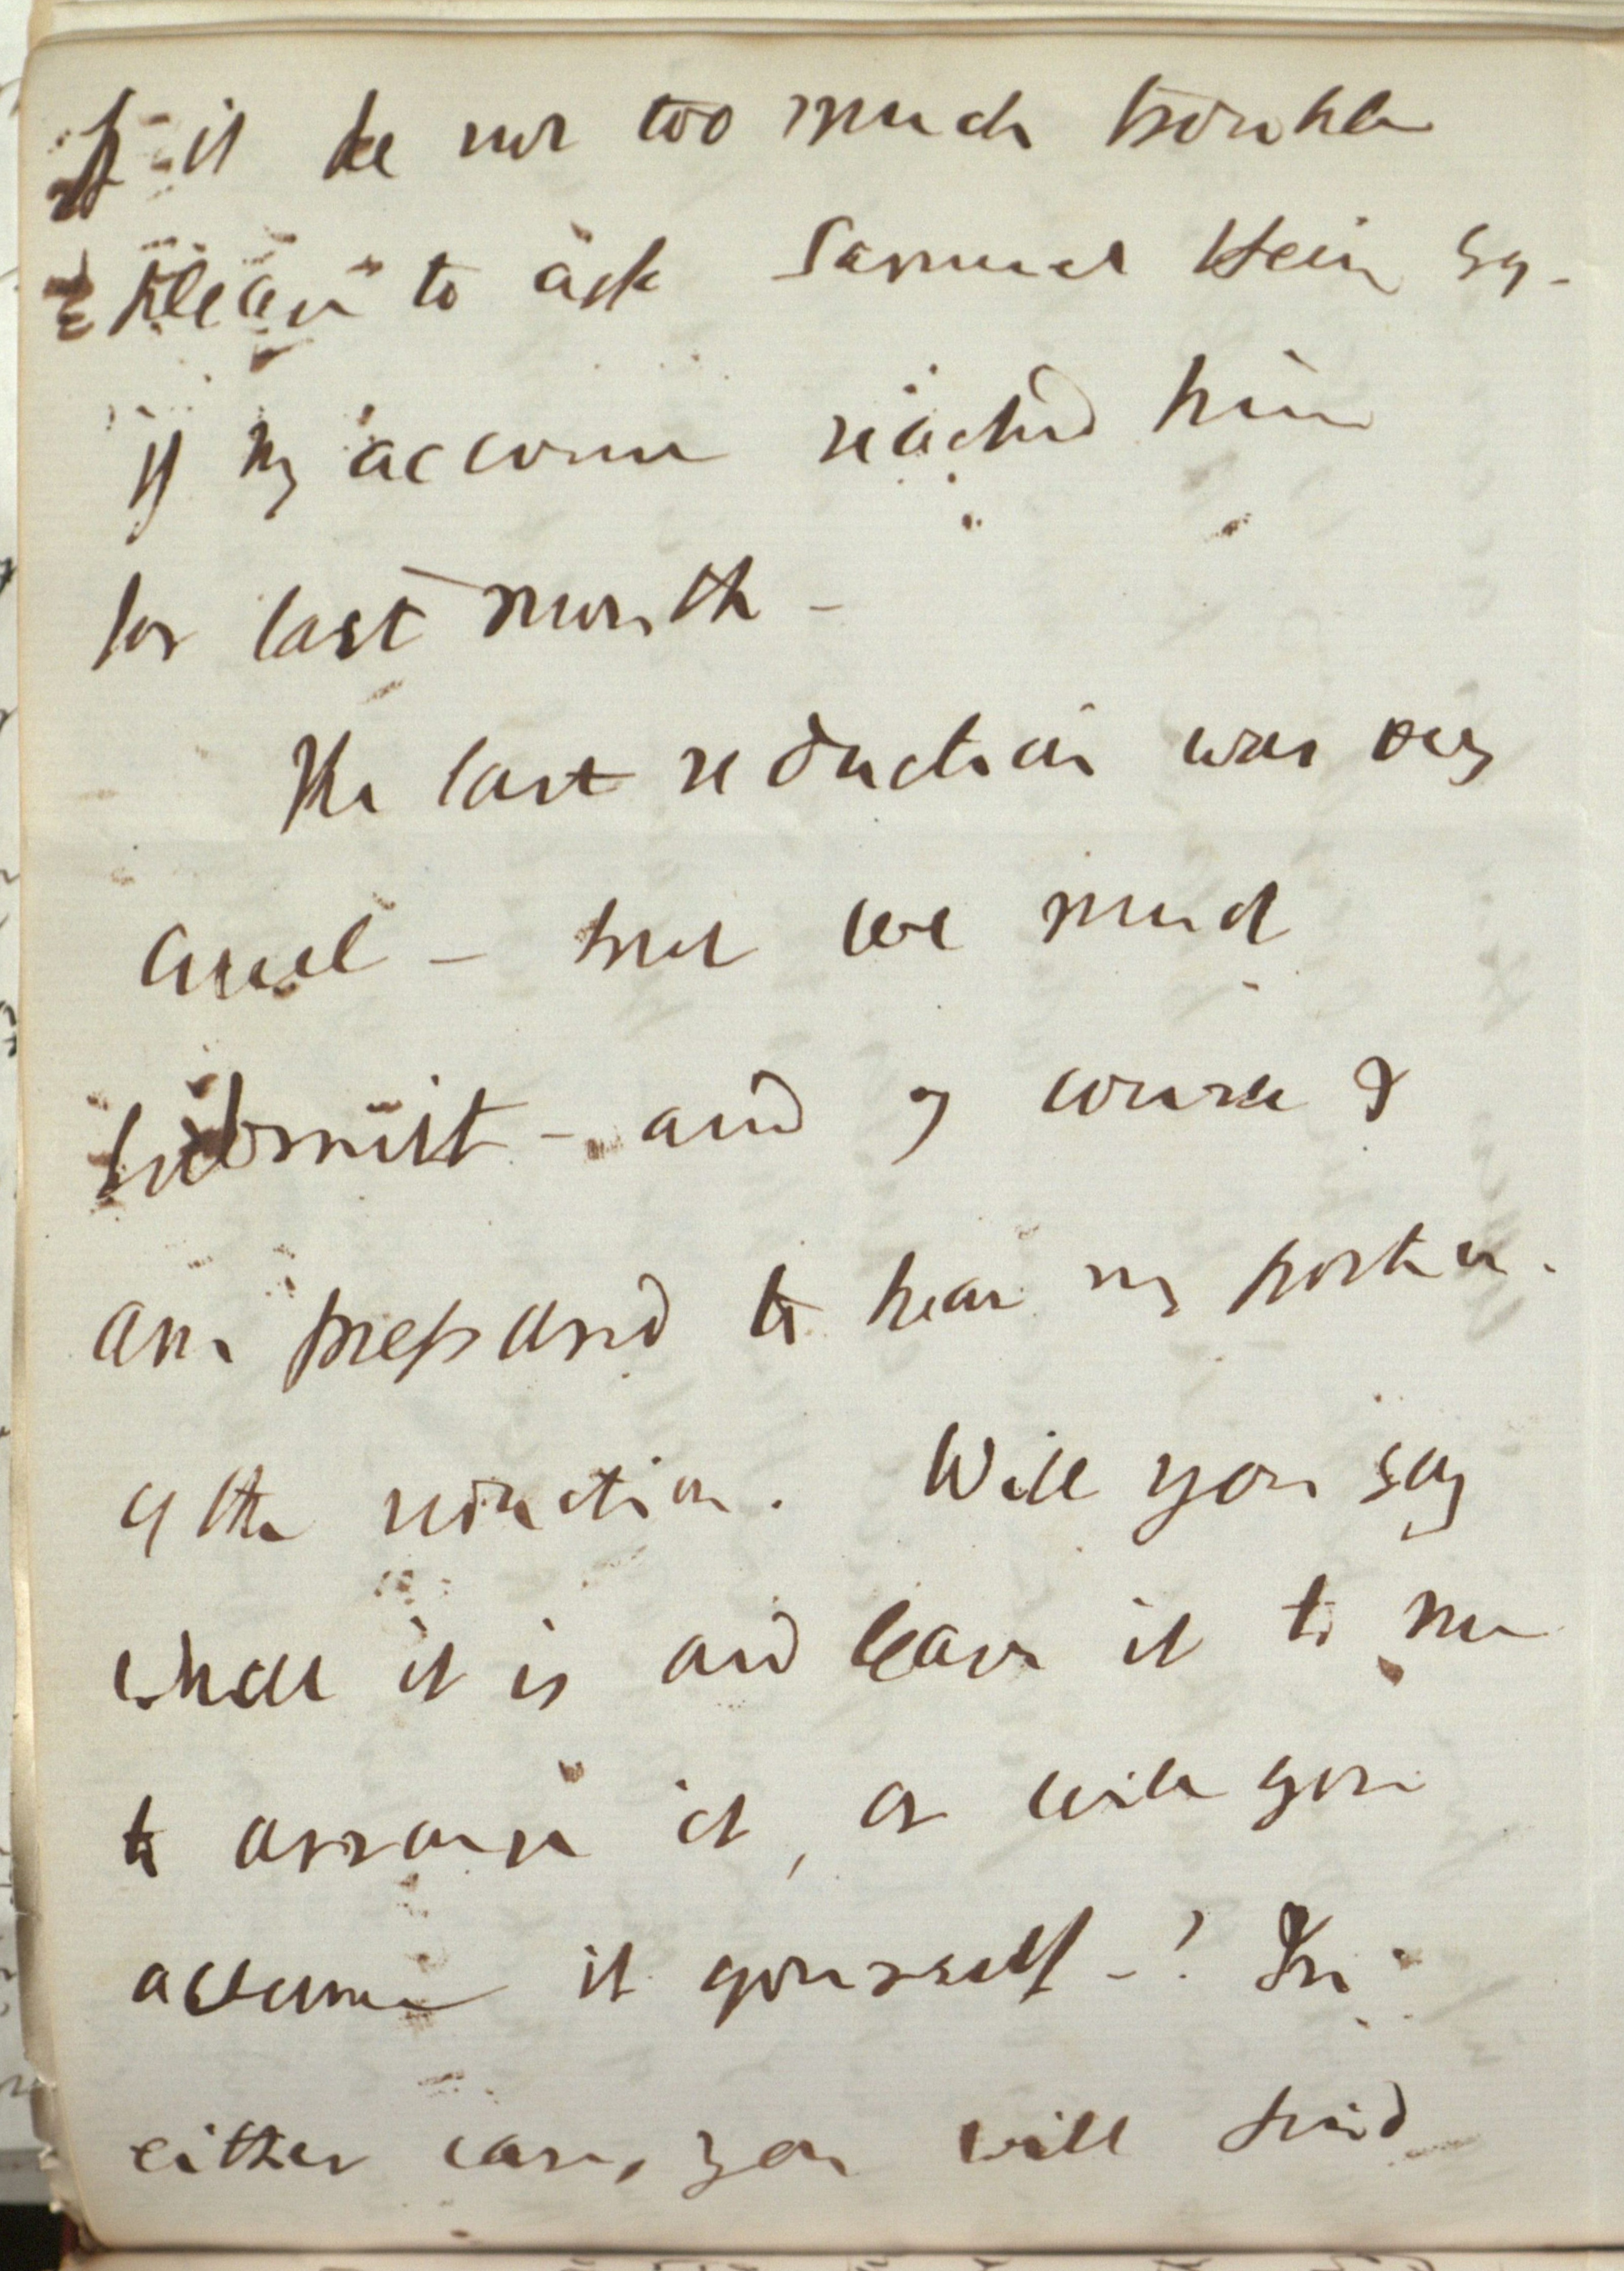 If it be not too much trouble
please to ask Samuel Hein Esq.
if my account reached him
for last month -
The last reduction was very
cruel - but we must
submit - and of course I
am prepared to bear my portion.
of the reduction. Will you say
what it is and leave it to me
to arrange it, or will you
assume it yourself - ? In
either case, you will find